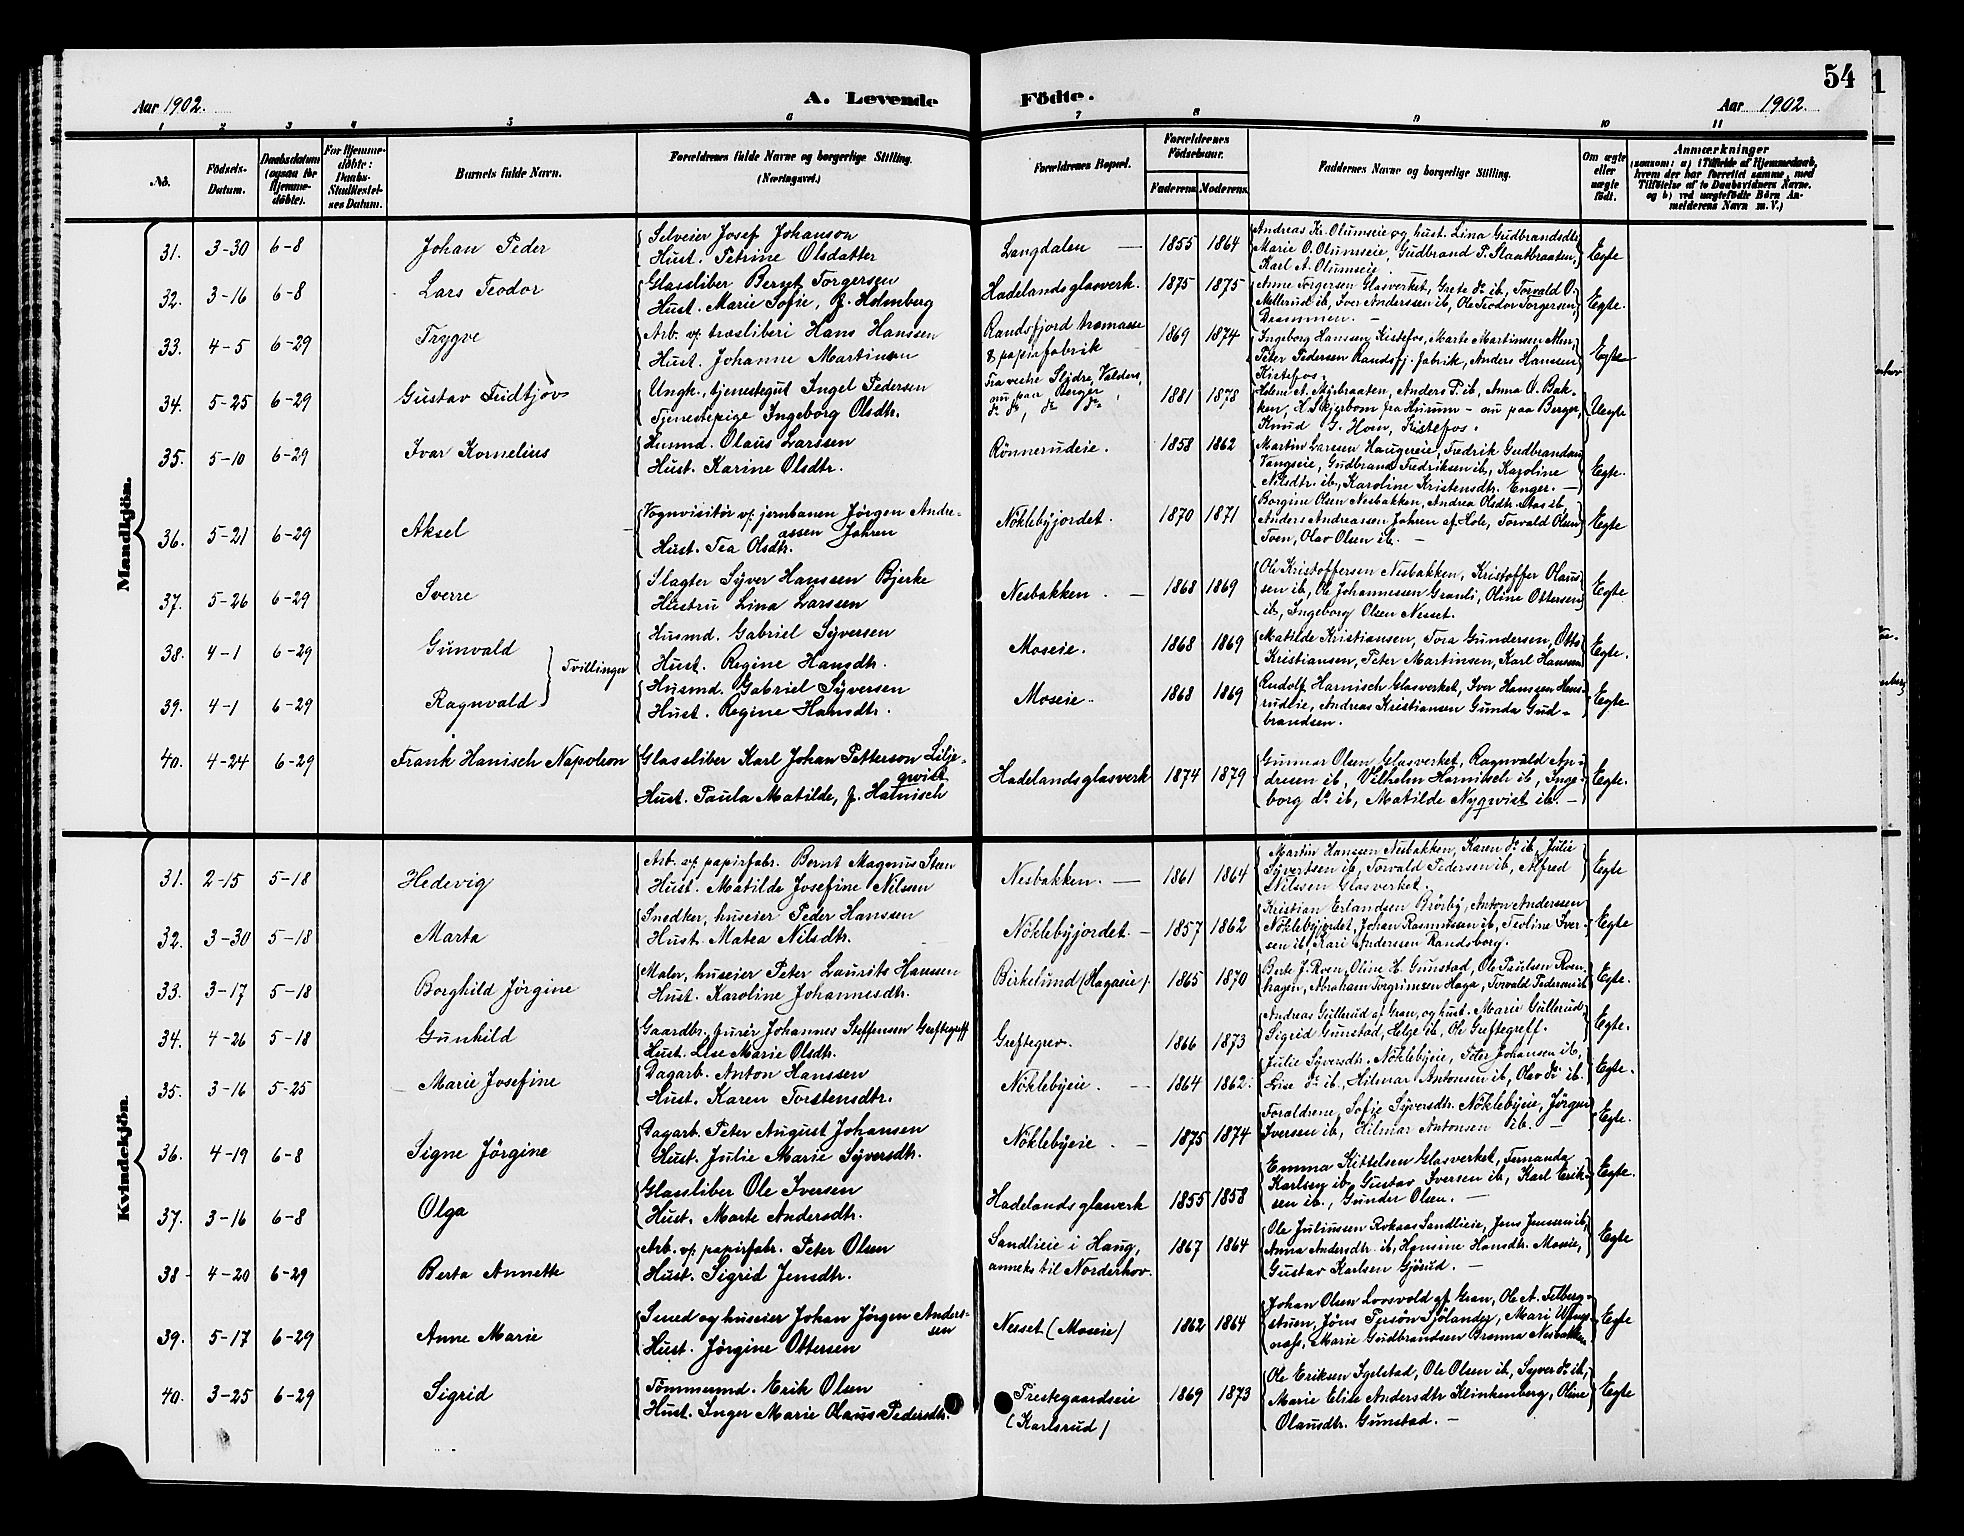 54
Aar 1902.
A. Levende Födte.
Aar 1902.
1 2 3 4 5 6 7 8 9 10 11
No.
Födsels-Datum.
Daabsdatum (ogsaa for Hjemme-döbte).
For Hjemme-döbte: Daabs-Stadfæstel-ses Datum.
Barnets fulde Navn.
Forældrenes fulde Navne og borgerlige Stilling. (Næringsvei.)
Forældrenes Bopæl.
Forældrenes Födselsaar.
Faderens. Moderens.
Faddernes Navne og borgerlige Stilling.
Om ægte eller uægte født.
Anmærkninger
(saasom: a) i Tilfælde af Hjemmedaab,
hvem der har forrettet samme, med
Tilföielse af to Daabsvidners Navne.
og b) ved uægtefödte Börn An-
melderens Navn m. V.)
Mandkjön.
31. 3-30 6-8 Johan Peder
Selveier Josef Johanson
Hust. Petrine Olsdatter
Langdalen 1855 1864
Andreas Kr. Olumseie og hust. Lina Gudbrandsdtr
Marie O. Olumseie, Gudbrand P. Slaatbraaten,
Karl A. Olumseie.
Egte
32. 3-16 6-8 Lars Teodor
Glassliber Bernt Torgersen
Hust. Marie Sofie, f. Holmberg
Hadelands glasverk. 1875 1875
Anne Torgersen Glasverket, Grete do ib, Torvald O.
Mellerud ib, Iver Anderssen ib, Ole Teodor Torgersen,
Drammen.
Egte.
33. 4-5 6-29 Trygve
Arb. v/ træsliberi Hans Hanssen
Hust. Johanne Martinsen
Randsfjord træmasse
& papirfabrik 1869 1874
Ingeborg Hanssen Kistefos, Marte Martinsen
Peter Pedersen Randsfj. fabrik, Anders Hanssen
Kistefos.
Egte
34. 5-25 6-29 Gustav Fridtjov
Ungk., tjenestegut Ingel Pedersen
Tjenestepige Ingeborg Olsdtr.
Fra vestre Slidre, Valders,
nu paa Berger
do do, do do 1881 1878
Helene A. Myrbraaten, Anders P. ib, Anna O. Bak-
ken, H. Skjerbom fra Hurum - nu paa Berger,
Knud G. Hoen, Kistefos.
Uegte
35. 5-10 6-29 Ivar Kornelius
Husmd. Olaus Larssen
Hust. Karine Olsdtr.
Rönnerudeie. 1858 1862
Martin Larssen Haugereie, Fredrik Gudbrandsen
Vangseie, Gudbrand Fredriksen ib, Karoline
Nilsdtr. ib., Karoline Kristensdtr. Enger.
Egte.
36. 5-21 6-29 Aksel
Vognvisitör v/ jernbanen Jörgen Andre-
assen Jahren
Hust. Tea Olsdtr.
Nöklebyjordet. 1870 1871
Borgine Olsen Nesbakken, Andrea Olsdtr. Stas ib,
Anders Andreassen Jahren af Hole, Torvald Olsen
Tven, Olav Olsen ib.
Egte
37. 5-26 6-29 Sverre
Slagter Syver Hanssen Bjerke
Hustru Lina Larssen
Nesbakken. 1868 1869
Ole Kristoffersen Nesbakken, Kristoffer Olaus-
sen ib, Ole Johannessen Granli, Oline Ottersen
ib, Ingeborg Olsen Nesset.
Egte.
38. 4-1 6-29 Gunvald
Husmd. Gabriel Syversen
Hust. Regine Hansdtr.
Moseie. 1868 1869
Matilde Kristiansen, Tora Gundersen, Otto
Kristiansen, Peter Martinsen, Karl Hanssen
Egte.
Tvillinger
39. 4-1 6-29 Ragnvald
Husmd. Gabriel Syversen
Hust. Regine Hansdtr.
Moseie. 1868 1869
Rudolf Harnisch Glasverket, Iver Hanssen Hens-
rudeie, Andreas Kristiansen Gunda Gud-
brandsen.
Egte
40. 4-24 6-29 Frank Hanisch Napoleon
Glassliber Karl Johan Petterson Lilje-
qvist
Hust. Paula Matilde, f. Harnisch
Hadelands glasverk 1874 1879
Gunnar Olsen Glasverket, Ragnvald An-
dresen ib, Vilhelm Harnitsch ib, Inge-
borg do ib, Matilde Nyqvist ib.
Egte.
Kvindekjön.
31. 2-15 5-18 Hedevig
Arb. v/ papirfabr. Bernt Magnus Steen
Hust. Matilde Josefine Nilssen
Nesbakken. 1861 1864
Martin Hanssen Nesbakken, Karen do ib, Julie
Syvertsen ib, Torvald Pedersen ib, Alfred
Nilssen Glasverket.
Egte
32. 3-30 5-18 Marta
Snedker, huseier Peder Hanssen
Hust. Matea Nilsdtr.
Nöklebyjordet. 1857 1862
Kristian Erlandsen Brörby, Anton Anderssen
Nöklebyjordet, Johan Rasmussen ib, Teoline Iver-
sen ib, Kari Anderssen Randsborg.
Egte
33. 3-17 5-18 Borghild Jörgine
Maler, huseier Peter Laurits Hanssen
Hust. Karoline Johannesdtr.
Birkelund (Hagaeie). 1865 1870
Berte J. Roen, Oline H. Gunstad, Ole Paulsen Roen-
hagen, Abraham Torgrimsen Haga, Torvald Pedersen ib
Egte.
34. 4-26 5-18 Gunhild
Gaardbr. furér Johannes Steffensen Greftegreff
Hust. Lise Marie Olsdtr.
Greftegrev. 1866 1873
Andreas Gullerud af Gran, og hust. Marie Gullerud,
Sigrid Gunstad, Helge ib, Ole Greftegreff.
Egte.
35. 3-16 5-25 Marie Josefine
Dagarb. Anton Hanssen
Hust. Karen Torstensdtr.
Nöklebyeie. 1864 1862.
Julie Syversdtr. Nöklebyeie, Peter Johansen ib,
Lise do ib, Hilmar Antonsen ib, Olav do ib.
Egte.
36. 4-19 6-8 Signe Jörgine
Dagarb. Peter August Johansen
Hust. Julie Marie Syversdtr.
Nöklebyeie 1875 1874
Foraldrene, Sofie Syversdtr. Nöklebyeie, Jörgen
Iversen ib, Hilmar Antonsen ib.
Egte.
37. 3-16 6-8 Olga
Glassliber Ole Iversen
Hust. Marte Andersdtr.
Hadelands glasverk 1855 1858
Emma Kittelsen Glasverket, Fernanda
Karlsen ib, Gustav Iversen ib, Karl Erik-
sen ib, Gunder Olsen.
Egte.
38 4-20 6-29 Berta Annette
Arb. v/ papirfabr. Peter Olsen
Hust. Sigrid Jensdtr.
Sandlieie i Haug,
anneks til Norderhov. 1867 1864
Ole Juliussen Rokaas Sandlieie, Jens Jenssen ib,
Anna Andersdtr. ib, Hansine Hansdtr. Moseie,
Gustav Karlsen Gjörud.
Egte
39. 5-17 6-29 Anne Marie
Smed og huseier Johan Jörgen Anders-
sen
Hust. Jörgine Ottersen
Nesset (Moseie) 1862 1864
Johan Olsen Loosvold af Gran, Ole A. Felberg-
stuen, Jöns Persön Sjölander, Mari
næss, Marie Gudbrandsen Brenna Nesbakken
Egte
40. 3-25 6-29 Sigrid
Tömmermd. Erik Olsen
Hust. Inger Marie Olaus Pedersdtr.
Prestegaardseie
(Karlsrud) 1869 1873
Ole Eriksen Igelstad, Ole Olsen ib, Syver do ib,
Marie Elise Andersdtr Klinkenberg, Oline
Olausdtr. Gunstad.
Egte